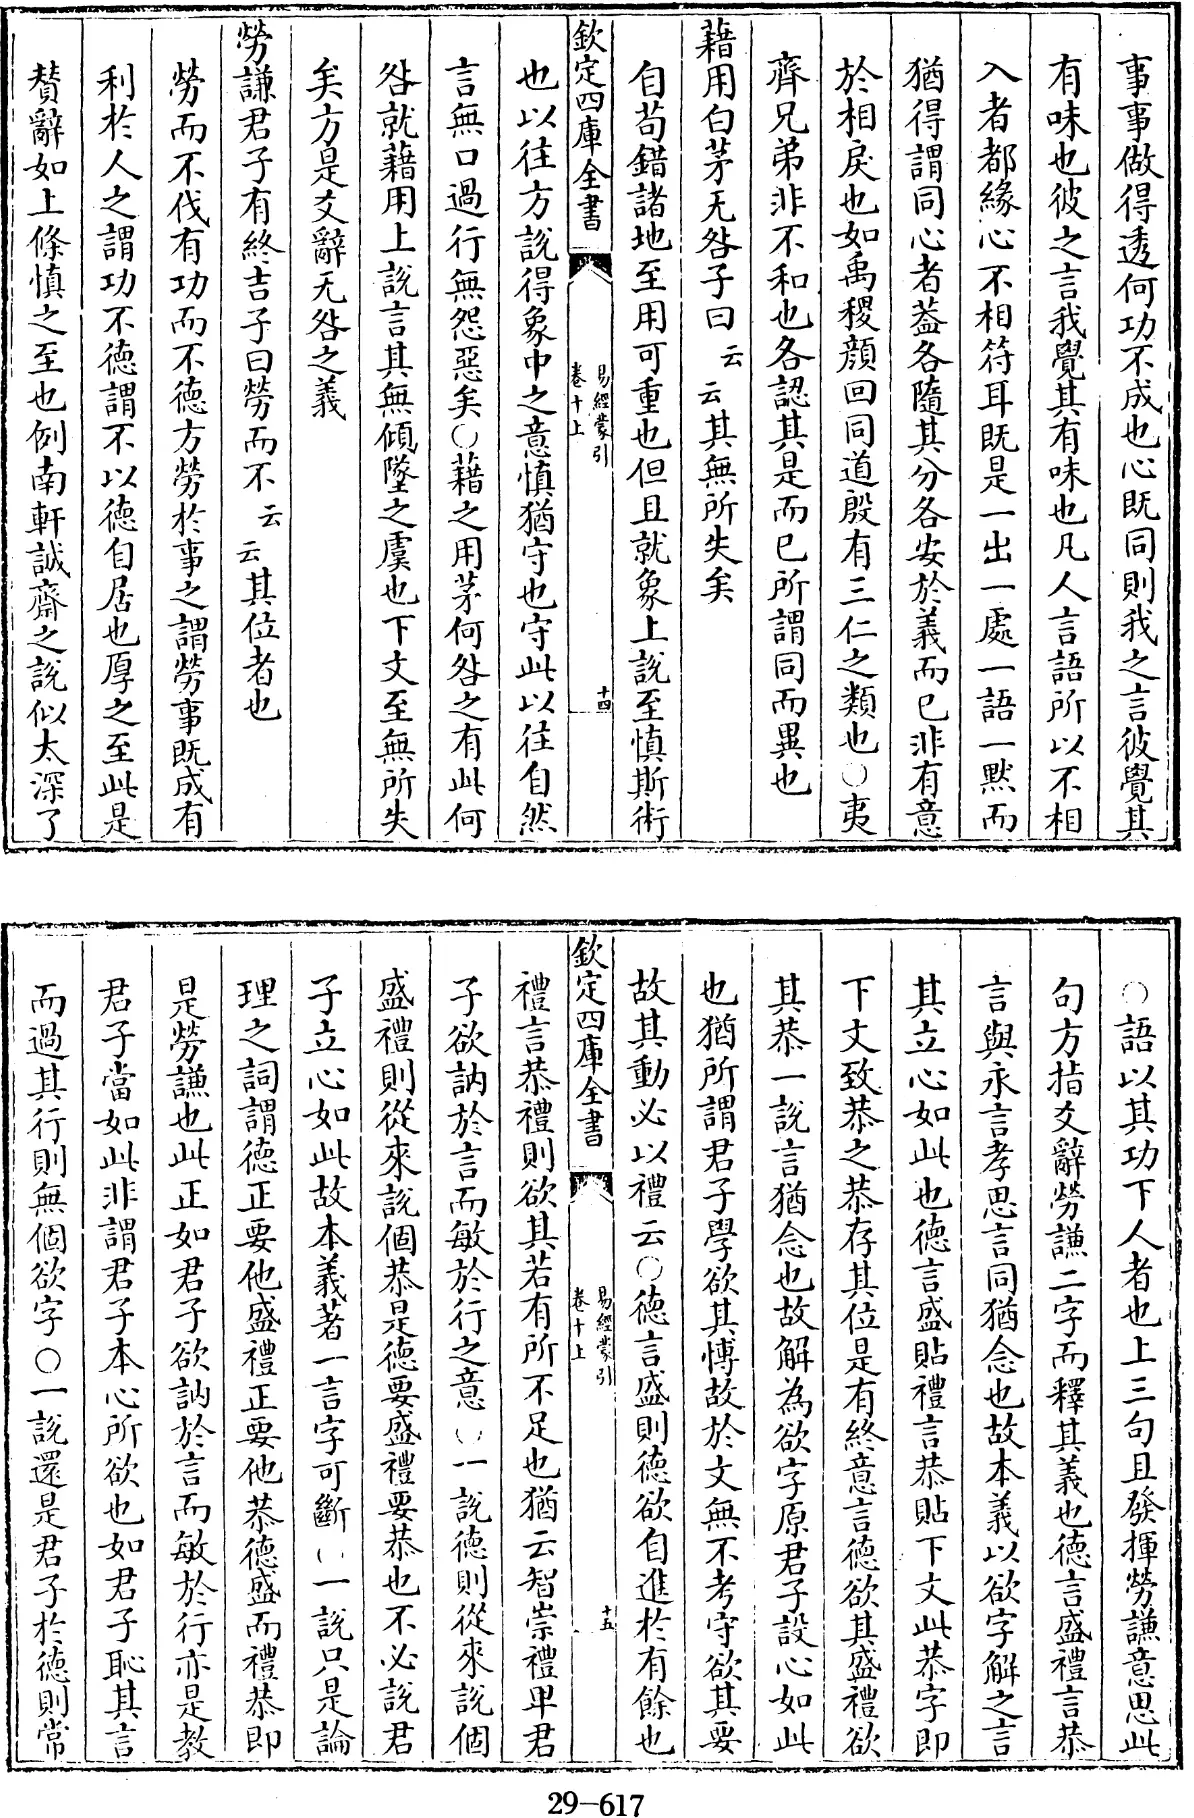 事事做得透何功不成也心既同則我之言彼覺其
有味也彼之言我覺其有味也凡人言語所以不相
入者都緣心不相符耳既是一出一處一語一默而
猶得謂同心者葢各隨其分各安於義而已非有意
於相戾也如禹稷顔回同道殷有三仁之類也○夷
齊兄弟非不和也各認其是而已所謂同而異也
藉用白茅无咎子曰云云其無所失矣
自苟錯諸地至用可重也但且就象上說至慎斯術
欽定四庫全書
易經蒙引
卷十上
十四
也以往方說得象中之意慎猶守也守此以往自然
言無口過行無怨惡矣○藉之用茅何咎之有此何
咎就藉用上說言其無傾墜之虞也下文至無所失
矣方是爻辭无咎之義
勞謙君子有終吉子曰勞而不云云其位者也
勞而不伐有功而不德方勞於事之謂勞事既成有
利於人之謂功不德謂不以德自居也厚之至此是
賛辭如上條慎之至也例南軒誠齋之說似太深了
○語以其功下人者也上三句且發揮勞謙意思此
句方指爻辭勞謙二字而釋其義也德言盛禮言恭
言與永言孝思言同猶念也故本義以欲字解之言
其立心如此也德言盛貼禮言恭貼下文此恭字即
下文致恭之恭存其位是有終意言德欲其盛禮欲
其恭一說言猶念也故解為欲字原君子設心如此
也猶所謂君子學欲其博故於文無不考守欲其要
故其動必以禮云○德言盛則德欲自進於有餘也
欽定四庫全書
易經蒙引
卷十上
十五
禮言恭禮則欲其若有所不足也猶云智崇禮卑君
子欲訥於言而敏於行之意○一說德則從來說個
盛禮則從來說個恭是德要盛禮要恭也不必說君
子立心如此故本義著一言字可斷○一說只是論
理之詞謂德正要他盛禮正要他恭德盛而禮恭即
是勞謙也此正如君子欲訥於言而敏於行亦是教
君子當如此非謂君子本心所欲也如君子恥其言
而過其行則無個欲字○一說還是君子於德則常
29-617